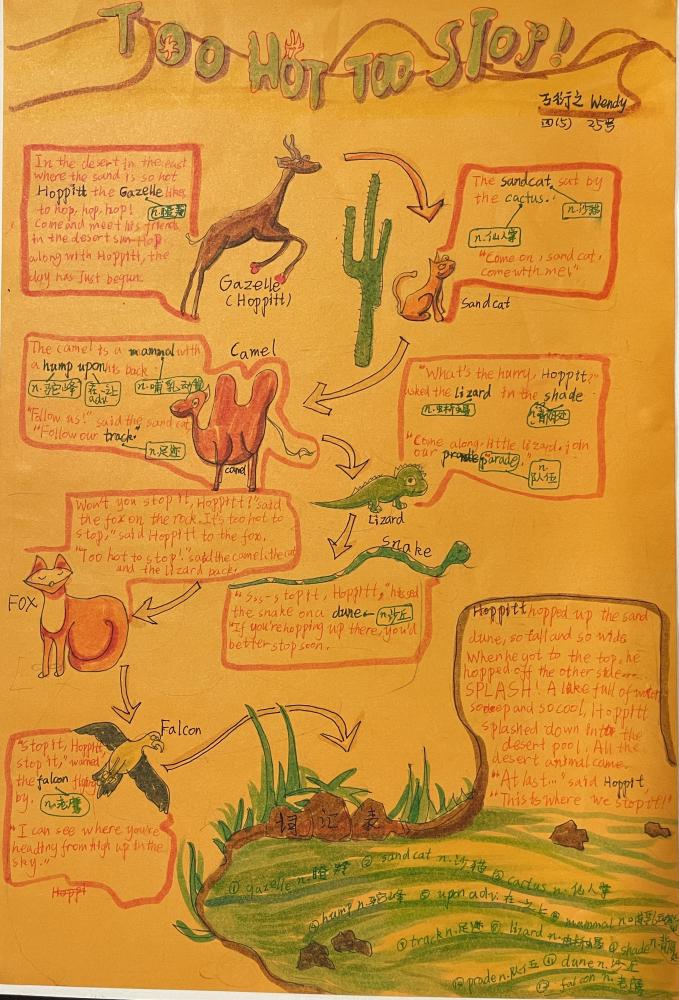 TOO HOT TOO STOP!
Wendy
四(5) 25号
In the desert in the east
where the sand is so hot
Hoppitt the Gazelle likes
to hop, hop, hop!
n.瞪羚
Come and meet his friends
in the desert sun. Hop
along with Hoppitt, the
day has just begun.
Gazelle
(Hoppitt)
The sandcat sat by
the cactus.
n.沙猫
n.仙人掌
"Come on, sand cat,
come with me!"
Sandcat
The camel is a mammal with
a hump upon its back.
n.驼峰
在…上
adv.
n.哺乳动物
"Follow us!" said the sand cat
"Follow our track."
n.足迹
Camel
camel
"What's the hurry, Hoppit?"
asked the lizard in the shade
n.蜥蜴
n.背阴处
"Come along, little lizard, join
our parade."
n.
队伍
Lizard
Won't you stop it, Hoppitt?" said
the fox on the rock. It's too hot to
stop," said Hoppitt to the fox.
"Too hot to stop!" said the camel, the cat
and the lizard back.
FOX
Snake
"Sss-stop it, Hoppitt," hissed
the snake on a dune
n.沙丘
"If you're hopping up there, you'd
better stop soon.
Falcon
"Stop it, Hoppitt
stop it," warned
the falcon flying
by.
n.老鹰
"I can see where you're
heading from high up in the
sky."
Hoppitt hopped up the sand
dune, so tall and so wide
When he got to the top, he
hopped off the other side...
SPLASH! A lake full of water
so deep and so cool, Hoppitt
splashed down into the
desert pool. All the
desert animal came.
"At last..." said Hoppit,
"This is where we stop it!"
词汇表
① gazelle n.瞪羚 ② sandcat n.沙猫 ③ cactus n.仙人掌
④ hump n.驼峰 ⑤ upon adv.在…之上 ⑥ mammal n.哺乳动物
⑦ track n.足迹 ⑧ lizard n.蜥蜴 ⑨ shade n.背阴处
⑩ prade n.队伍 ⑪ dune n.沙丘
⑫ falcon n.老鹰